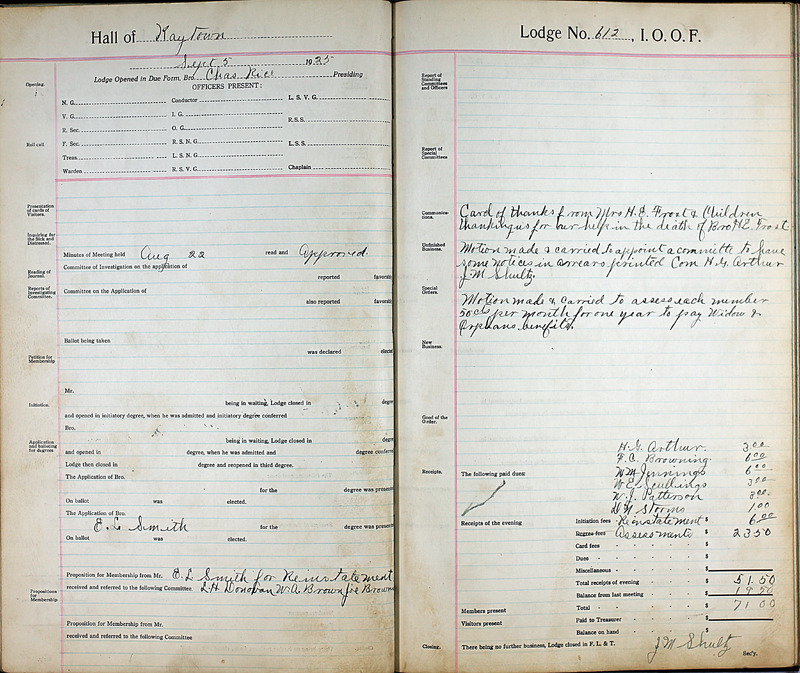 Hall of Kaytown
Sept 5 1925
Lodge Opened in Due Form, Bro. Chas Rice Presiding
OFFICERS PRESENT:
Opening.
Roll call
N. G. Conductor L. S. V. G.
V. G. I. G. R.S.S.
R. Sec. O. G.
F. Sec. R. S. N. G. L.S.S.
Treas. L. S. N. G.
Warden R. S. V. G. Chaplain
Presentation of cards of Visitors.
Inquiring for the Sick and Distressed.
Minutes of Meeting held Aug 22 read and Approved.
Reading of Journal.
Committee of Investigation on the application of
reported favorab
Reports of Investigating Committee.
Committee on the Application of
also reported favorab
Ballot being taken
was declared elected
Petition for Membership
Mr.
Initiation.
being in waiting, Lodge closed in degree
and opened in initiatory degree, when he was admitted and initiatory degree conferred
Bro.
Application and balloting for degrees
being in waiting, Lodge closed in degree
and opened in degree, when he was admitted and degree conferre
Lodge then closed in degree and reopened in third degree.
The Application of Bro.
for the degree was presente
On ballot was elected.
The Application of Bro.
E. L. Smith for the degree was presente
On ballot was elected.
Propositions for Membership
Proposition for Membership from Mr. E. L Smith for Reinstatement
received and referred to the following Committee L.H Donovan W.A. Brown Joe Brown
Proposition for Membership from Mr.
received and referred to the following Committee
Lodge No. 612, I. O. O. F.
Report of Standing Committees and Officers
Report of Special Committees
Communications.
Card of thanks from Mrs H. E. Frost & Children
thanking us for our help in the death of Bro H.E. Frost
Unfinished Business.
Motion made & carried to appoint a committe to have
some notices in arrears printed Com H.G. Arthur
J. M Shultz.
Special Orders.
Motion made & carried to assess each member
50 cts per month for one year to pay Widow &
Orphans benefits.
New Business.
Good of the Order.
H. G. Arthur. 3.00
Browning.
Receipts.
The following paid dues:
Wm Jennings 6.00
W. E. Scullings 3.00
W. J. Patterson
Storms 1.00
Receipts of the evening
Initiation fees Reinstatement $ 6.00
Degree fees Assessments $ 23.50
Card fees $
Dues $
Miscellaneous $
Total receipts of evening $ 51.50
Balance from last meeting $ 19.50
Members present
Total $ 71 00
Visitors present
Paid to Treasurer $
Balance on hand $
Closing.
There being no further business, Lodge closed in F. L. & T.
J M Shultz Sec'y.